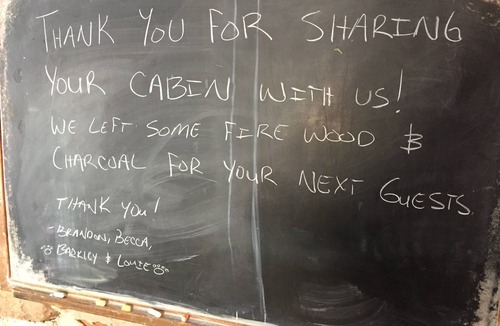 THANK YOU FOR SHARING
YOUR CABIN WITH US!
WE LEFT SOME FIRE WOOD &
CHARCOAL FOR YOUR NEXT GUESTS
THANK YOU!
- BRANDON, BECCA,
BARKLEY & LOUIE